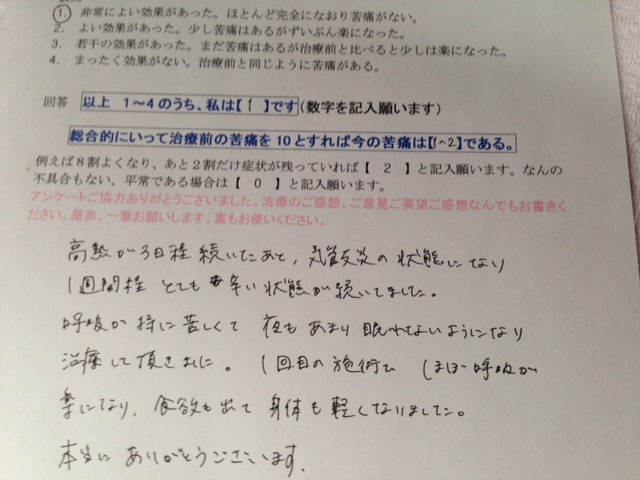 1. 非常によい効果があった。ほとんど完全になおり苦痛がない。
2. よい効果があった。少し苦痛はあるがずいぶん楽になった。
3. 若干の効果があった。まだ苦痛はあるが治療前と比べると少しは楽になった。
4. まったく効果がない。治療前と同じように苦痛がある。
回答 以上 1～4のうち、私は【 1 】です(数字を記入願います)
総合的にいって治療前の苦痛を10とすれば今の苦痛は【1~2】である。
例えば8割よくなり、あと2割だけ症状が残っていれば【 2 】と記入願います。なんの
不具合もない、平常である場合は【 0 】と記入願います。
アンケートご協力ありがとうございました。治療のご感想、ご意見ご要望ご感想なんでもお書きく
ださい。是非、一筆お願いします。裏もお使いください。
高熱が3日程続いたあと、気管支炎の状態になり
1週間程 とても 辛い状態が続いてました。
呼吸が特に苦しくて 夜もあまり眠れないようになり
治療して頂きました。1回目の施術で ほぼ呼吸が
楽になり、食欲も出て 身体も軽くなりました。
本当に ありがとうございます。